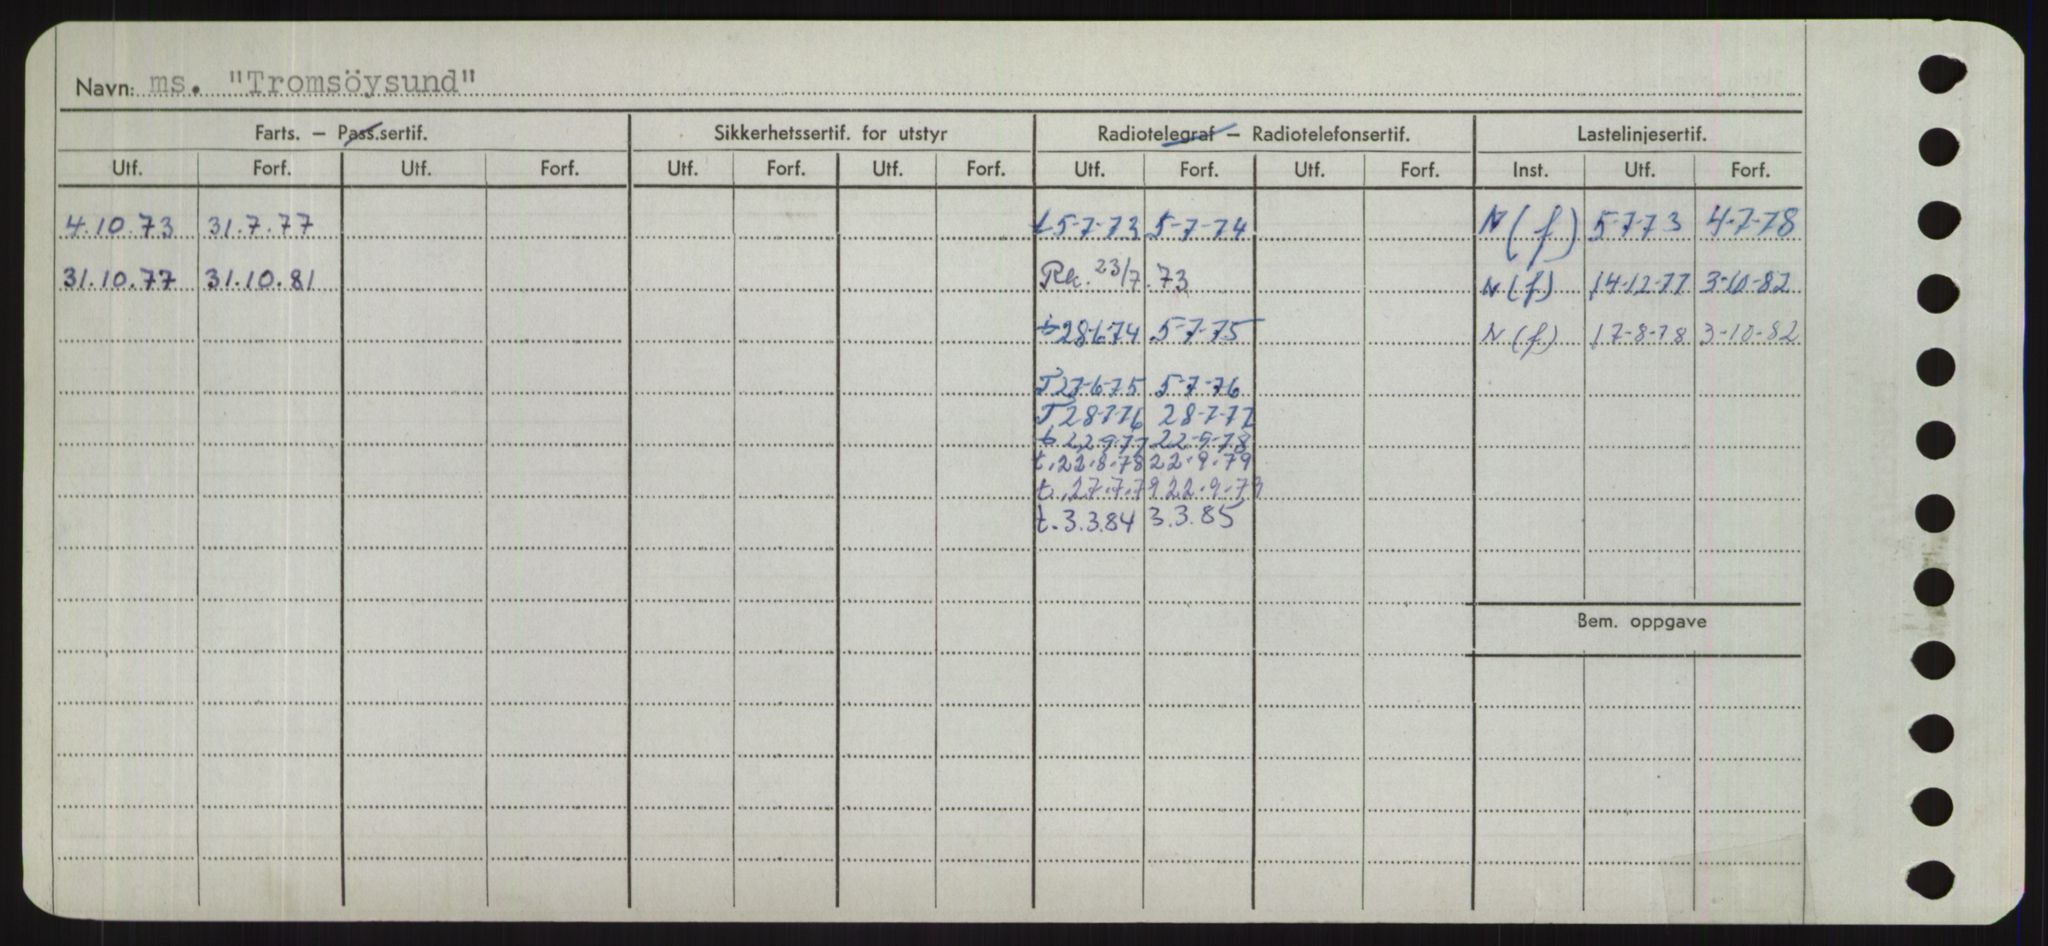 Navn: ms. "Tromsöysund"
Farts. – Pass.sertif. Sikkerhetssertif. for utstyr Radiotelegraf – Radiotelefonsertif. Lastelinjesertif.
Utf. Forf. Utf. Forf. Utf. Forf. Utf. Forf. Utf. Forf. Utf. Forf. Inst. Utf. Forf.
4.10.73 31.7.77 t 5-7-73 5-7-74 N(f) 5-7-73 4-7-78
31.10.77 31.10.81 Rk. 23/7.73 N(f) 14-12-77 3-10-82
t 28-6-74 5-7-75 N(f) 17-8-78 3-10-82
T 27-6-75 5-7-76
T 28-7-76 28-7-77
t 22-9-77 22-9-78
t. 22.8.78 22.9.79
t. 27.7.79 22.9.79
t. 3.3.84 3.3.85
Bem. oppgave